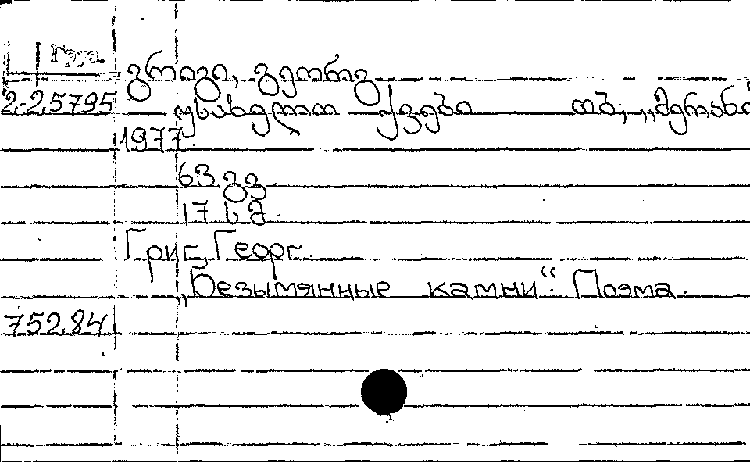 Груз.
გრიგი, გეორგ
2-25795 უსახელო ქვები თბ., „მერანი
1977
63 გვ
17 სმ
Григ, Георг.
„Безымянные камни“. Поэма.
752.84